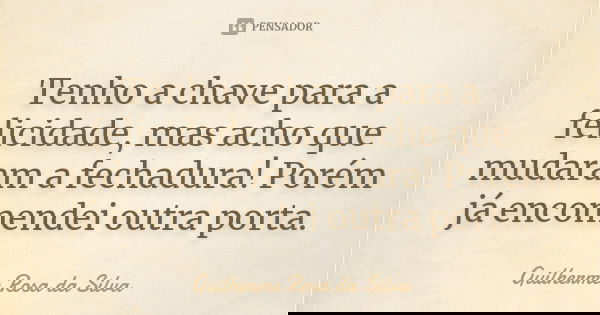 PENSADOR
Tenho a chave para a
felicidade, mas acho que
mudaram a fechadura! Porém
já encomendei outra porta.
Guilherme Rosa da Silva